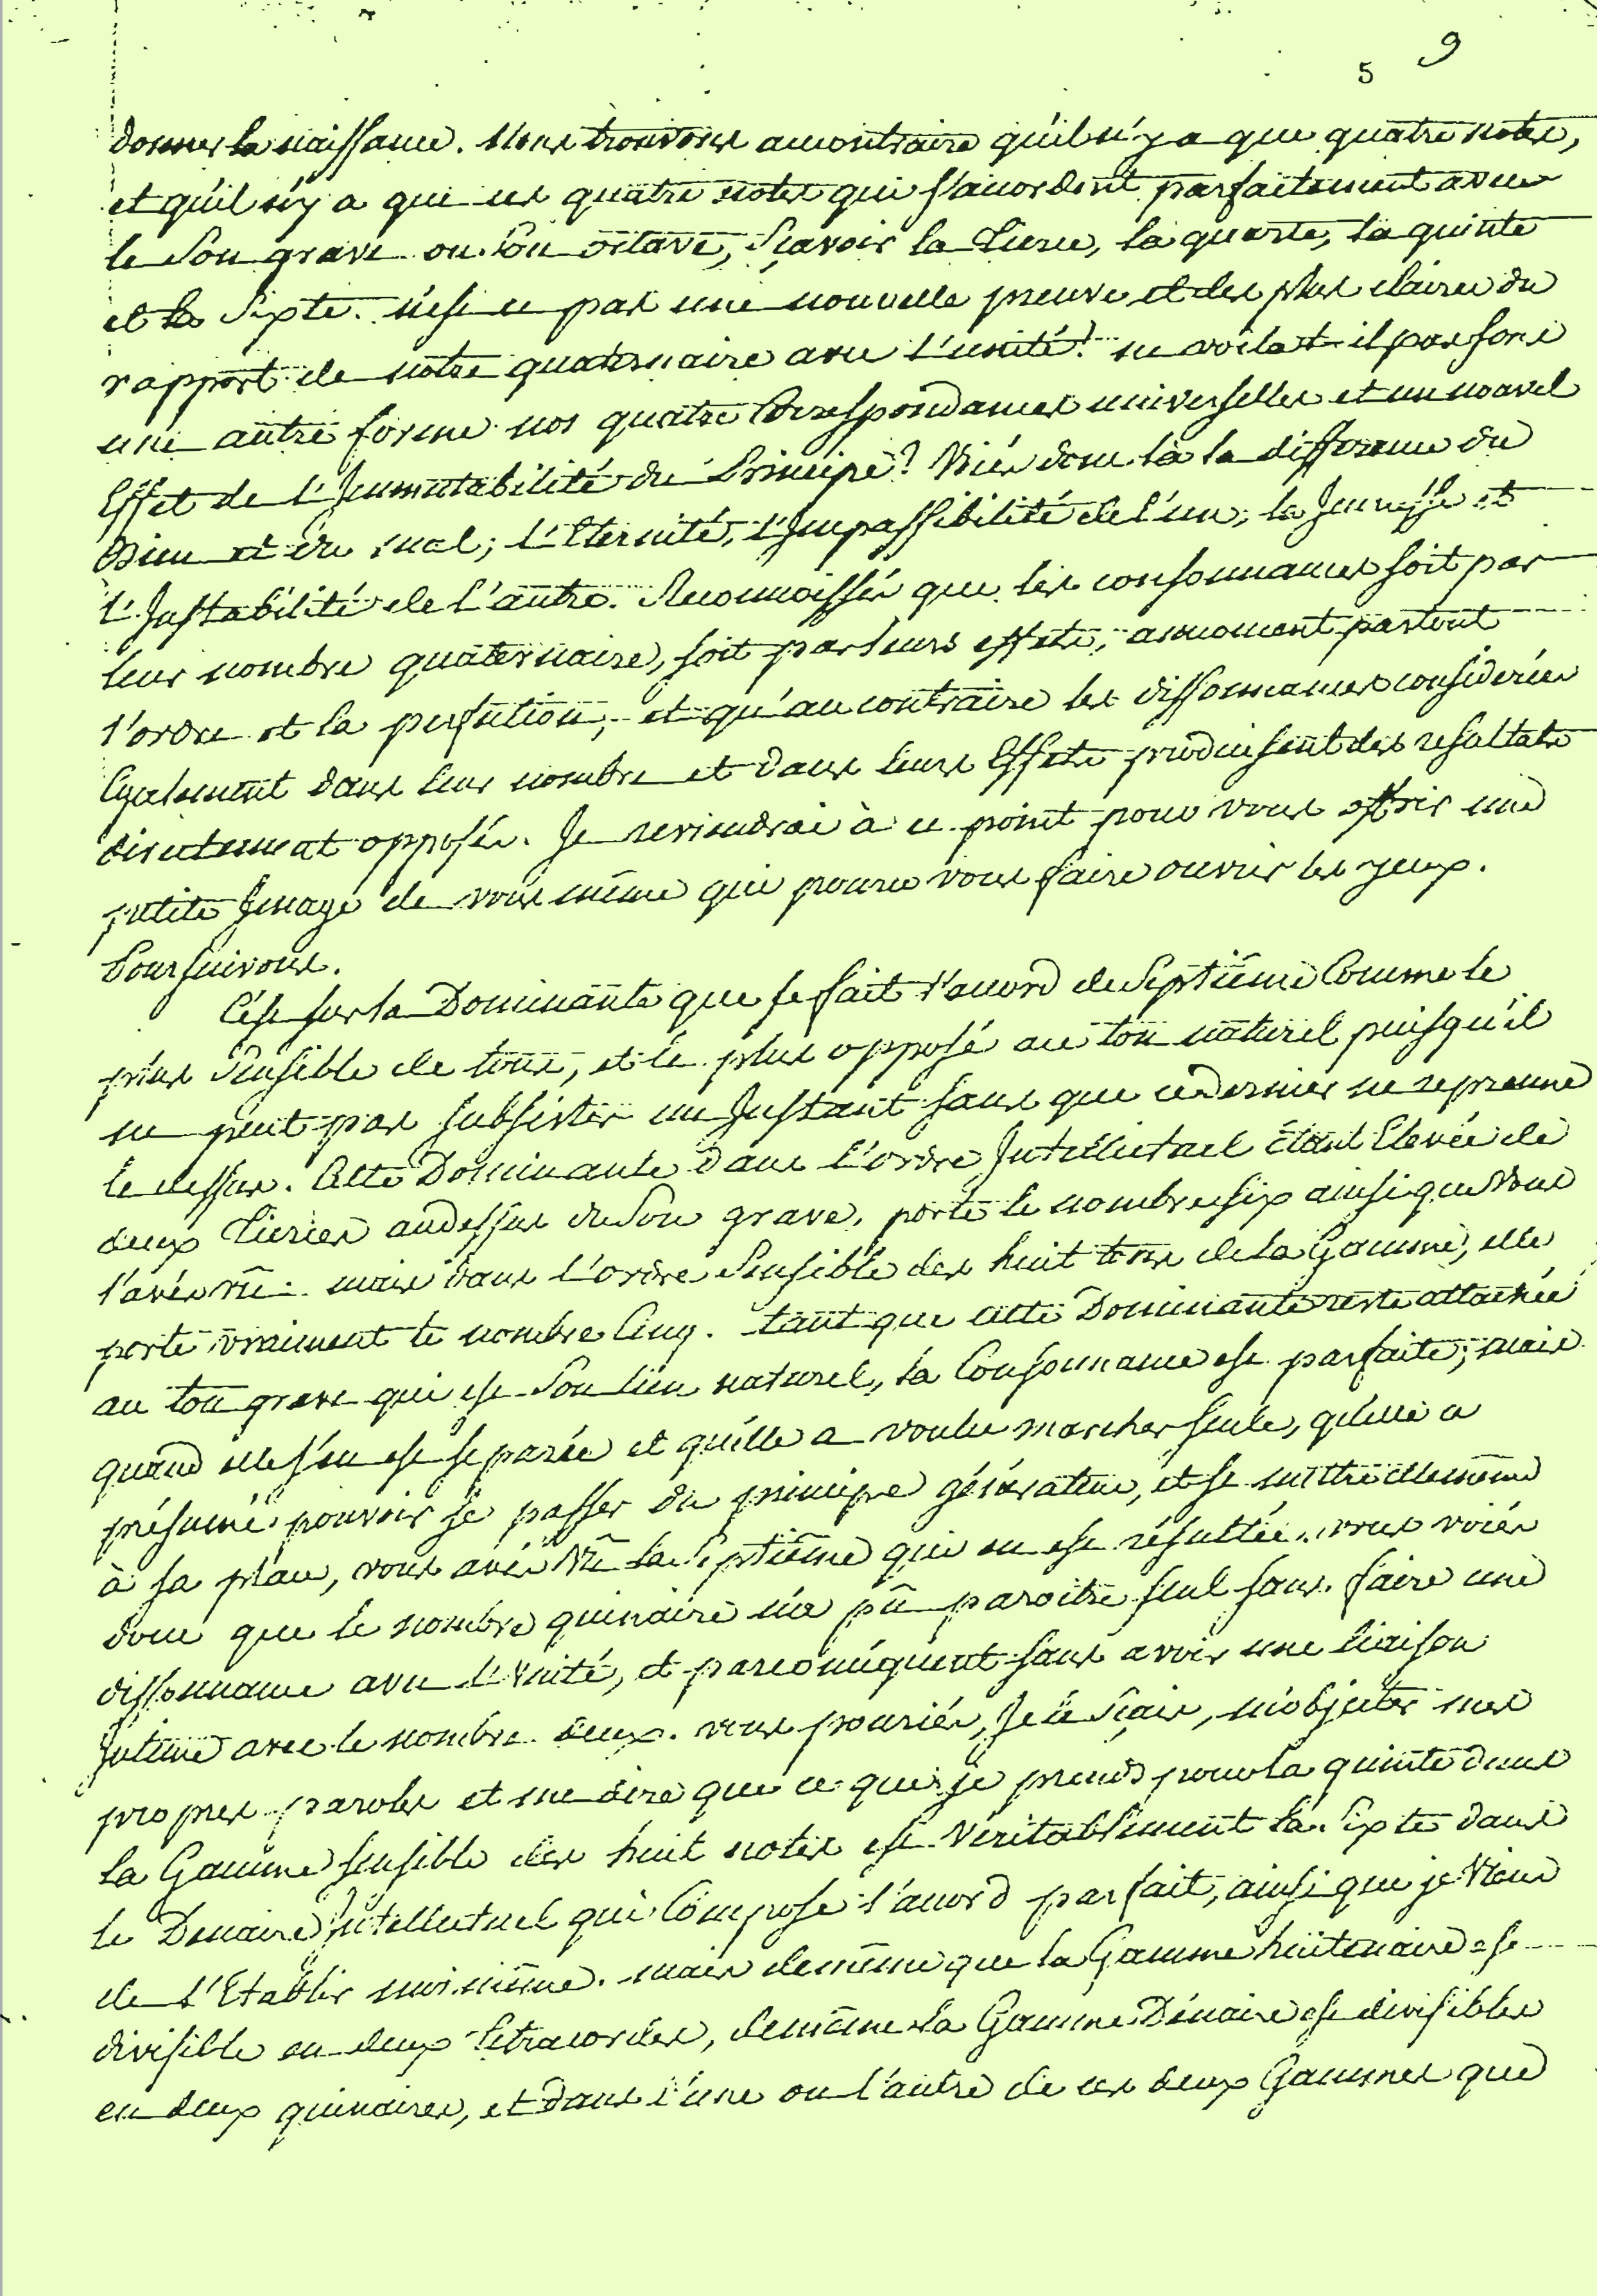 5 9
donner la naissance. Nous trouvons aucontraire qu'il n'y a que quatre notes,
et qu'il n'y a que ces quatre notes qui s'accordent parfaitement avec
le Son grave ou Son octave, Sçavoir la Tierce, la quarte, la quinte
et la Sixte. n'est ce pas une nouvelle preuve et des plus claires du
rapport de notre quaternaire avec l'unité? ne voilat-il pas sous
une autre forme nos quatre Correspondances universelles et un nouvel
Effet de l'Immutabilité du Principe? Voiés donc là la difference du
Bien et du mal; l'Eternité, l'Impassibilité de l'un; la et
l'Instabilité de l'autre. Reconnoissés que les consonnances soit par
leur nombre quaternaire, soit par leurs effets, annoncent partout
l'ordre et la perfection, et qu'au contraire les dissonnances considerées
Egalement dans leur nombre et dans leurs Effets produisent des resultats
directement opposés. Je reviendrai à ce point pour vous offrir une
petite Image de vous même qui poura vous faire ouvrir les yeux.
Poursuivons.
C'est sur la Dominante que se fait l'accord de Septiême Comme le
plus Sensible de tous, et le plus opposé au ton naturel puisqu'il
ne peut pas subsister un Instant sans que ce dernier ne reprenne
le dessus. Cette Dominante dans l'ordre Intellectuel étant Elevée de
deux Tierces audessus du Son grave, porte le nombre six ainsi que vous
l'avés vû. mais dans l'ordre Sensible des huit tons de la Gamme, elle
porte vraiment le nombre Cinq. tant que cette Dominante reste attachée
au ton grave qui est Son lien naturel, la Consonnance est parfaite; mais
quand elle s'en est separée et qu'elle a voulu marcher seule, qu'elle a
présumé pouvoir se passer du principe générateur, et se mettre ellemême
à sa place, vous avés vû la Septiême qui en est résultée. vous voiés
donc que le nombre quinaire n'a pû paroitre seul sans faire une
dissonnance avec l'Unité, et parconséquent sans avoir une liaison
Intime avec le nombre deux. vous pouriés, Je le sçais, m'objecter mes
propres paroles et me dire que ce que je prends pour la quinte dans
la Gamme sensible des huit notes est véritablement la Sixte dans
le Denaire Intellectuel qui Compose l'accord parfait, ainsi que je viens
de l'Etablir moi.même. mais demême que la Gamme huitenaire est
divisible en deux Tetracordes, demême la Gamme Dénaire est divisible
en deux quinaires, et dans l'une ou l'autre de ces deux Gammes que